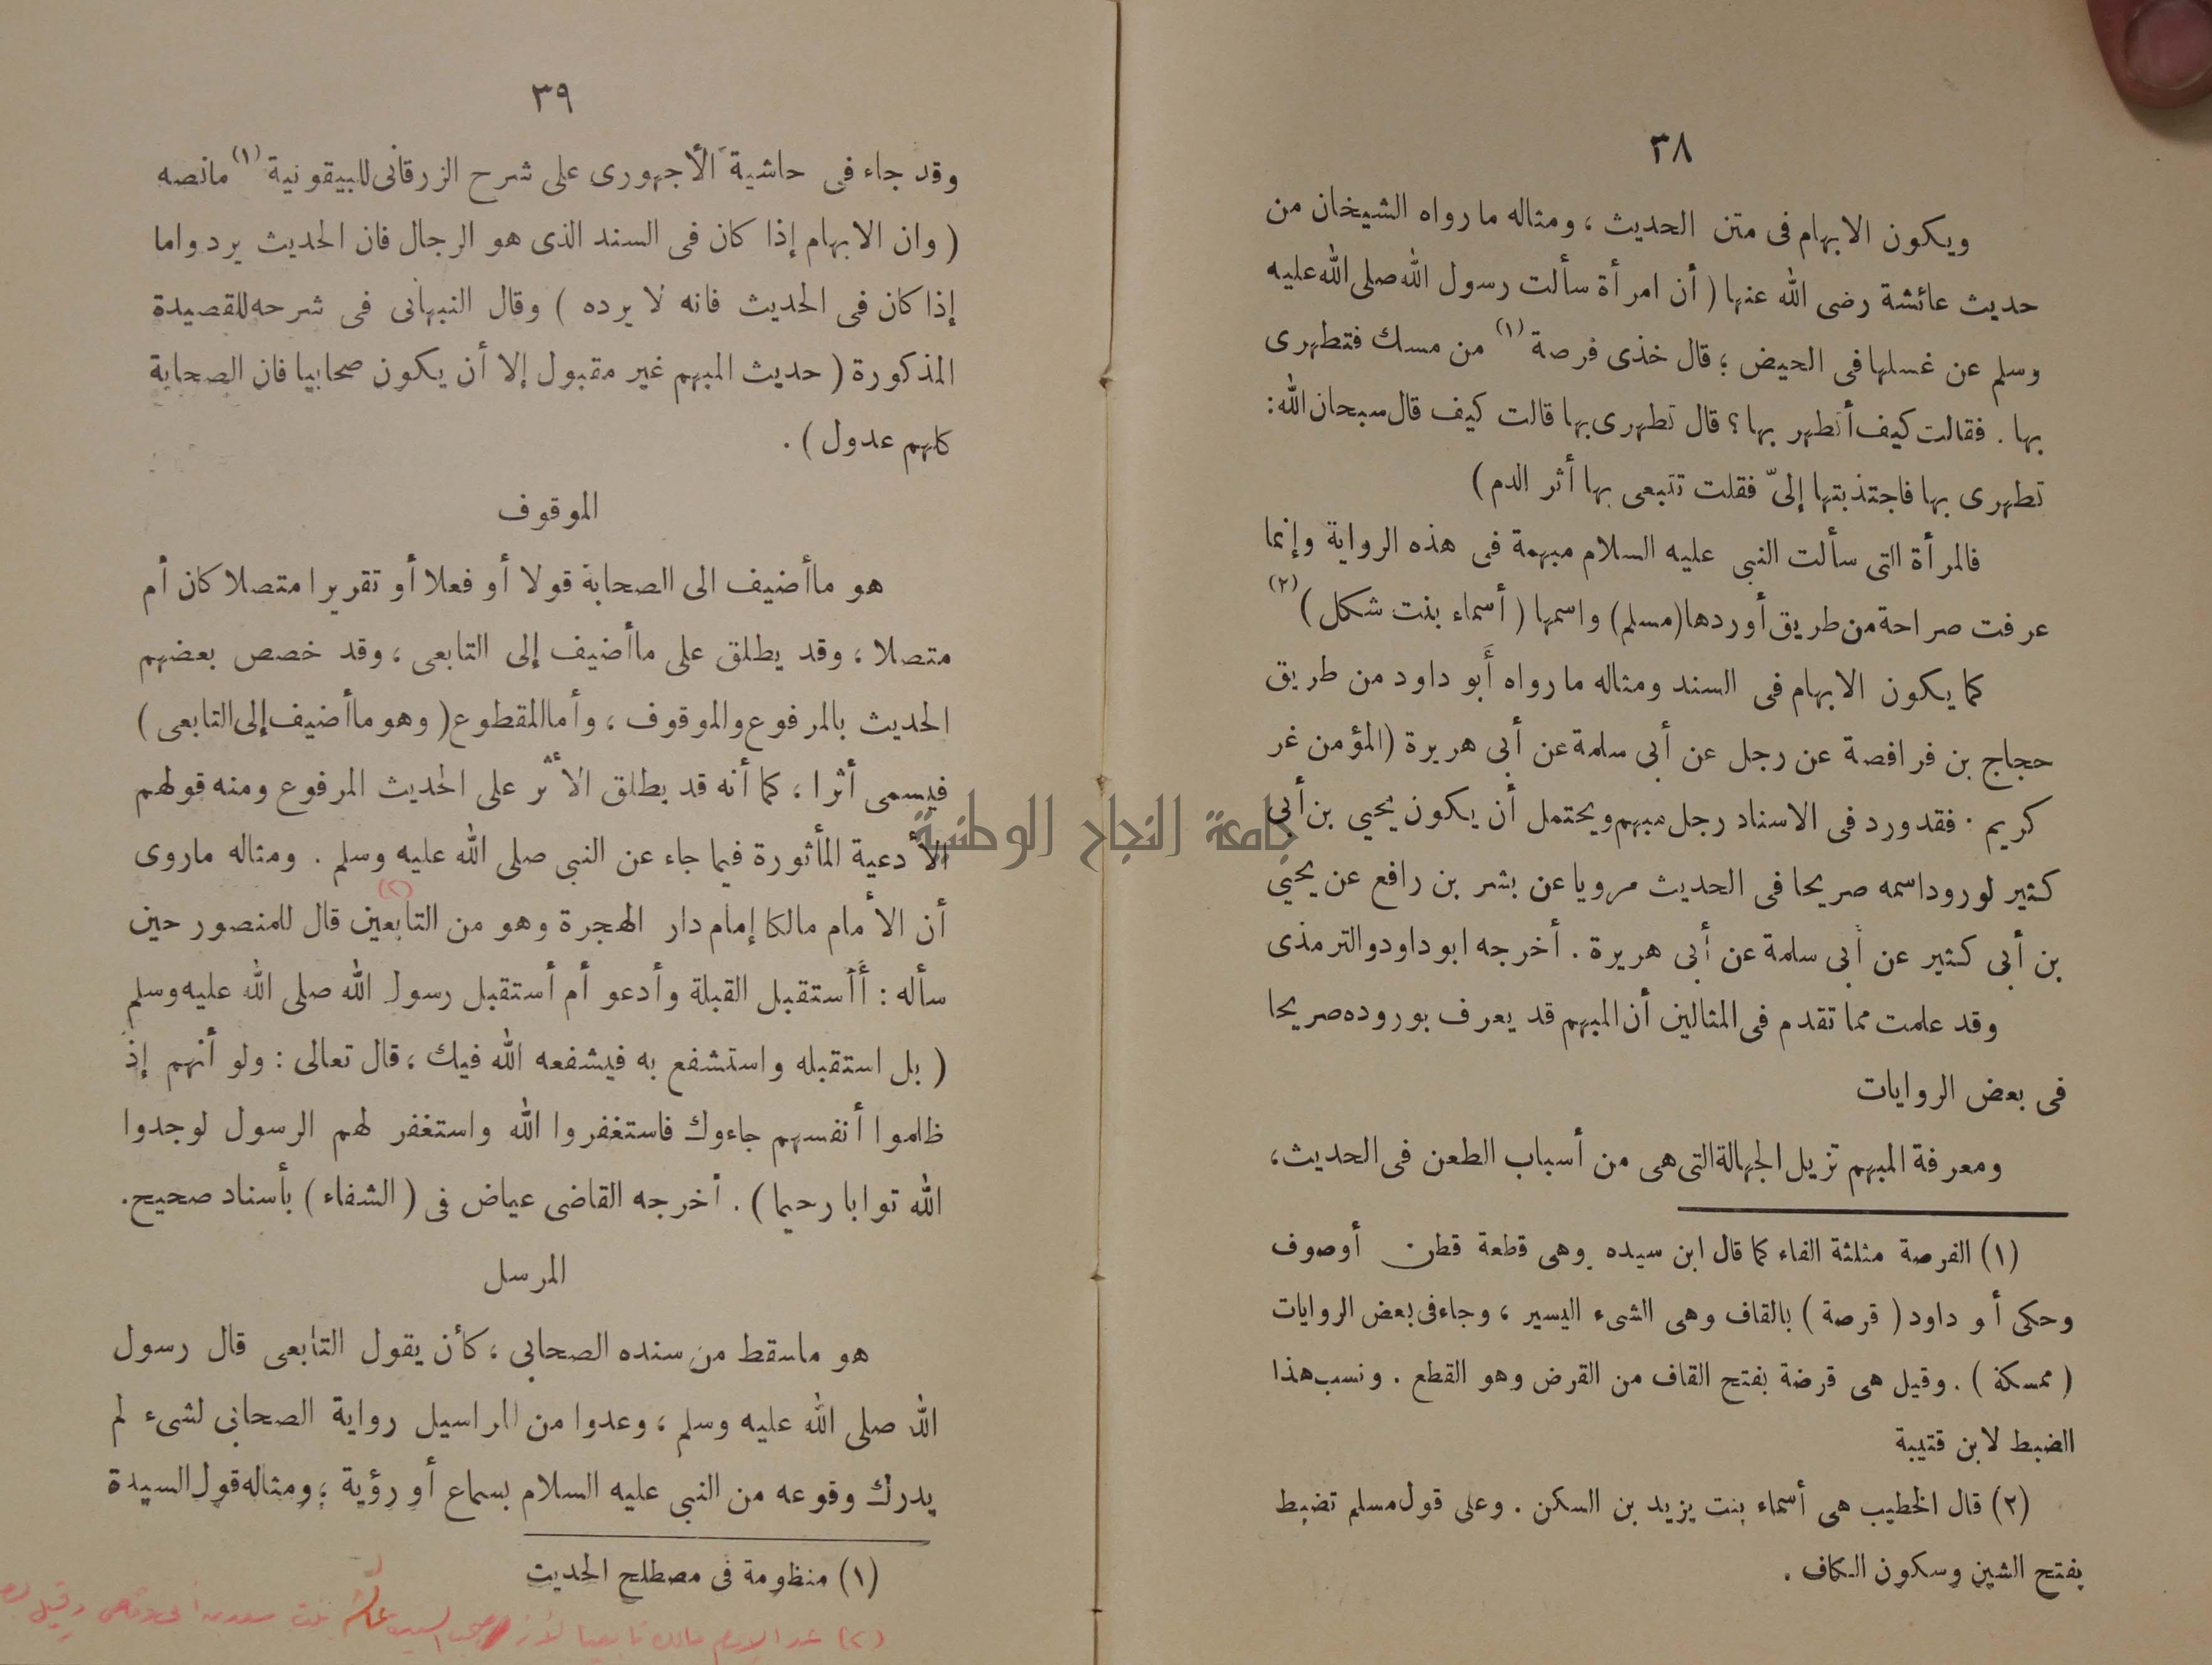 ٣٨
ويكون الابهام فى متن الحديث ، ومثاله ما رواه الشيخان من
حديث عائشة رضى الله عنها ( أن امرأة سألت رسول الله صلى الله عليه
وسلم عن غسلها فى الحيض ؛ قال خذى فرصة (١) من مسك فتطهرى
بها . فقالت كيف أتطهر بها ؟ قال تطهرى بها قالت كيف قال سبحان الله :
تطهرى بها فاجتذبتها إلىّ فقلت تتبعى بها أثر الدم )
فالمرأة التى سألت النبى عليه السلام مبهمة فى هذه الرواية وإنما
عرفت صراحة من طريق أوردها (مسلم) واسمها ( أسماء بنت شكل ) (٢)
كما يكون الابهام فى السند ومثاله ما رواه أَبو داود من طريق
حجاج بن فرافصة عن رجل عن أبى سلمة عن أبى هريرة (المؤمن غر
كريم . فقد ورد فى الاسناد رجل مبهم ويحتمل أن يكون يحيى بن أبى
كثير لورود اسمه صريحا فى الحديث مرويا عن بشر بن رافع عن يحيى
بن أبى كثير عن أبى سلمة عن أبى هريرة . أخرجه ابو داود والترمذى
وقد علمت مما تقدم فى المثالين أن المبهم قد يعرف بوروده صريحا
فى بعض الروايات
ومعرفة المبهم تزيل الجهالة التى هى من أسباب الطعن فى الحديث ،
(١) الفرصة مثلثة الفاء كما قال ابن سيده وهى قطعة قطن أوصوف
وحكى أ و داود ( قرصة ) بالقاف وهى الشىء اليسير ، وجاء فى بعض الروايات
( ممسكة ) . وقيل هى قرضة بفتح القاف من القرض وهو القطع . ونسب هذا
الضبط لابن قتيبة
(٢) قال الخطيب هى أسماء بنت يزيد بن السكن . وعلى قول مسلم تضبط
بفتح الشين وسكون الكاف .
٣٩
وقد جاء فى حاشية الأجهورى على شرح الزرقانى للبيقونية (١) مانصه
( وان الابهام إذا كان فى السند الذى هو الرجال فان الحديث يرد واما
إذا كان فى الحديث فانه لا يرده ) وقال النبهانى فى شرحه للقصيدة
المذكورة ( حديث المبهم غير مقبول إلا أن يكون صحابيا فان الصحابة
كلهم عدول ) .
الموقوف
هو ماأضيف الى الصحابة قولا أو فعلا أو تقريرا متصلا كان أم
متصلا ، وقد يطلق على ماأضيف إلى التابعى ، وقد خصص بعضهم
الحديث بالمرفوع والموقوف ، وأما المقطوع ( وهو ماأضيف إلى التابعى )
فيسمى أثرا ، كما أنه قد يطلق الأثر على الحديث المرفوع ومنه قولهم
الأدعية المأثورة فيما جاء عن النبى صلى الله عليه وسلم . ومثاله ماروى
أن الأمام مالكا إمام دار الهجرة وهو من التابعين (٢) قال للمنصور حين
سأله : أأستقبل القبلة وأدعو أم أستقبل رسول الله صلى الله عليه وسلم
( بل استقبله واستشفع به فيشفعه الله فيك ، قال تعالى : ولو أنهم إذ
ظلموا أنفسهم جاءوك فاستغفروا الله واستغفر لهم الرسول لوجدوا
الله توابا رحيما ) . أخرجه القاضى عياض فى ( الشفاء ) بأسناد صحيح .
المرسل
هو ماسقط من سنده الصحابى ، كأن يقول التابعى قال رسول
الله صلى الله عليه وسلم ، وعدوا من المراسيل رواية الصحابى لشىء لم
يدرك وقوعه من النبى عليه السلام بسماع أو رؤية ؛ ومثاله قول السيدة
(١) منظومة فى مصطلح الحديث
(٢) عد الامام مالك تابعيا لأنه السيدة عائشة بنت سعد بن أبى وقاص وقيل
جامعة النجاح الوطنية